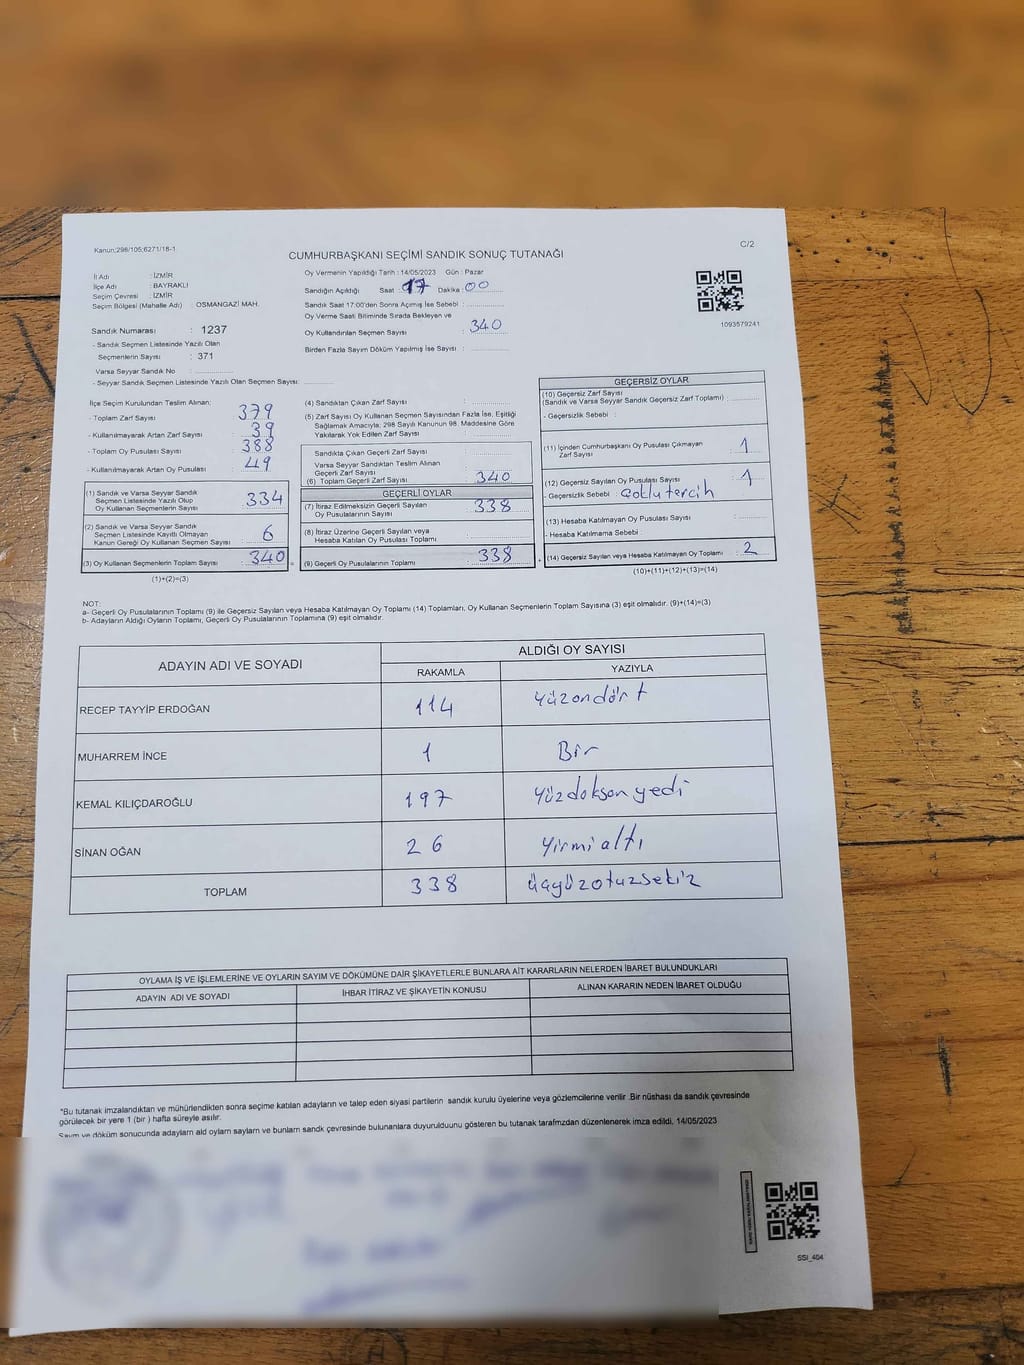 Kanun;298/105;6271/18-1
C/2
CUMHURBAŞKANI SEÇİMİ SANDIK SONUÇ TUTANAĞI
İl Adı : İZMİR
İlçe Adı : BAYRAKLI
Seçim Çevresi : İZMİR
Seçim Bölgesi (Mahalle Adı) : OSMANGAZİ MAH.
Sandık Numarası : 1237
- Sandık Seçmen Listesinde Yazılı Olan
Seçmenlerin Sayısı : 371
Varsa Seyyar Sandık No :
- Seyyar Sandık Seçmen Listesinde Yazılı Olan Seçmen Sayısı:
Oy Vermenin Yapıldığı Tarih : 14/05/2023 Gün : Pazar
Sandığın Açıldığı Saat : 17 Dakika : 00
Sandık Saat 17:00'den Sonra Açılmış İse Sebebi :
Oy Verme Saati Bitiminde Sırada Bekleyen ve
Oy Kullandırılan Seçmen Sayısı : 340
Birden Fazla Sayım Döküm Yapılmış İse Sayısı :
1093579241
İlçe Seçim Kurulundan Teslim Alınan;
- Toplam Zarf Sayısı : 379
- Kullanılmayarak Artan Zarf Sayısı : 39
- Toplam Oy Pusulası Sayısı : 388
- Kullanılmayarak Artan Oy Pusulası : 49
(1) Sandık ve Varsa Seyyar Sandık
Seçmen Listesinde Yazılı Olup
Oy Kullanan Seçmenlerin Sayısı : 334
(2) Sandık ve Varsa Seyyar Sandık
Seçmen Listesinde Kayıtlı Olmayan
Kanun Gereği Oy Kullanan Seçmen Sayısı : 6
(3) Oy Kullanan Seçmenlerin Toplam Sayısı : 340
(1)+(2)=(3)
(4) Sandıktan Çıkan Zarf Sayısı :
(5) Zarf Sayısı Oy Kullanan Seçmen Sayısından Fazla İse, Eşitliği
Sağlamak Amacıyla; 298 Sayılı Kanunun 98. Maddesine Göre
Yakılarak Yok Edilen Zarf Sayısı :
Sandıkta Çıkan Geçerli Zarf Sayısı :
Varsa Seyyar Sandıktan Teslim Alınan
Geçerli Zarf Sayısı :
(6) Toplam Geçerli Zarf Sayısı : 340
GEÇERLİ OYLAR
(7) İtiraz Edilmeksizin Geçerli Sayılan
Oy Pusulalarının Sayısı : 338
(8) İtiraz Üzerine Geçerli Sayılan veya
Hesaba Katılan Oy Pusulası Toplamı :
(9) Geçerli Oy Pusulalarının Toplamı : 338
GEÇERSİZ OYLAR
(10) Geçersiz Zarf Sayısı
(Sandık ve Varsa Seyyar Sandık Geçersiz Zarf Toplamı) :
- Geçersizlik Sebebi :
(11) İçinden Cumhurbaşkanı Oy Pusulası Çıkmayan
Zarf Sayısı : 1
(12) Geçersiz Sayılan Oy Pusulası Sayısı : 1
- Geçersizlik Sebebi : çoklu tercih
(13) Hesaba Katılmayan Oy Pusulası Sayısı :
- Hesaba Katılmama Sebebi :
(14) Geçersiz Sayılan veya Hesaba Katılmayan Oy Toplamı : 2
(10)+(11)+(12)+(13)=(14)
NOT:
a- Geçerli Oy Pusulalarının Toplamı (9) ile Geçersiz Sayılan veya Hesaba Katılmayan Oy Toplamı (14) Toplamları, Oy Kullanan Seçmenlerin Toplam Sayısına (3) eşit olmalıdır. (9)+(14)=(3)
b- Adayların Aldığı Oyların Toplamı, Geçerli Oy Pusulalarının Toplamına (9) eşit olmalıdır.
ADAYIN ADI VE SOYADI ALDIĞI OY SAYISI
RAKAMLA YAZIYLA
RECEP TAYYİP ERDOĞAN 114 Yüzondört
MUHARREM İNCE 1 Bir
KEMAL KILIÇDAROĞLU 197 Yüzdoksanyedi
SİNAN OĞAN 26 Yirmialtı
TOPLAM 338 üçyüzotuzsekiz
OYLAMA İŞ VE İŞLEMLERİNE VE OYLARIN SAYIM VE DÖKÜMÜNE DAİR ŞİKAYETLERLE BUNLARA AİT KARARLARIN NELERDEN İBARET BULUNDUKLARI
ADAYIN ADI VE SOYADI İHBAR İTİRAZ VE ŞİKAYETİN KONUSU ALINAN KARARIN NEDEN İBARET OLDUĞU
*Bu tutanak imzalandıktan ve mühürlendikten sonra seçime katılan adayların ve talep eden siyasi partilerin sandık kurulu üyelerine veya gözlemcilerine verilir .Bir nüshası da sandık çevresinde
görülecek bir yere 1 (bir ) hafta süreyle asılır.
Sayım ve döküm sonucunda adayların ald oyların sayıları ve bunların sandık çevresinde bulunanlara duyurulduunu gösteren bu tutanak tarafımzdan düzenlenerek imza edildi, 14/05/2023
SSI_404